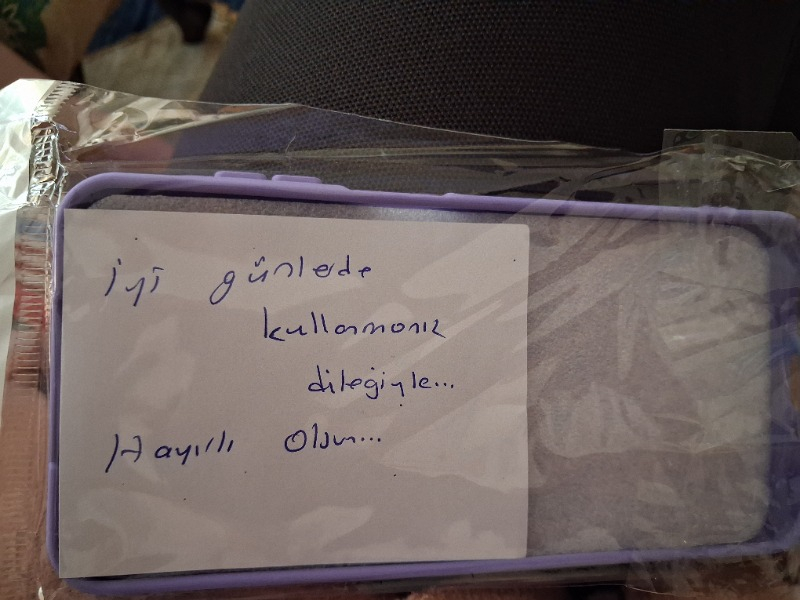 İyi günlerde
kullanmanız
dileğiyle...
Hayırlı Olsun...